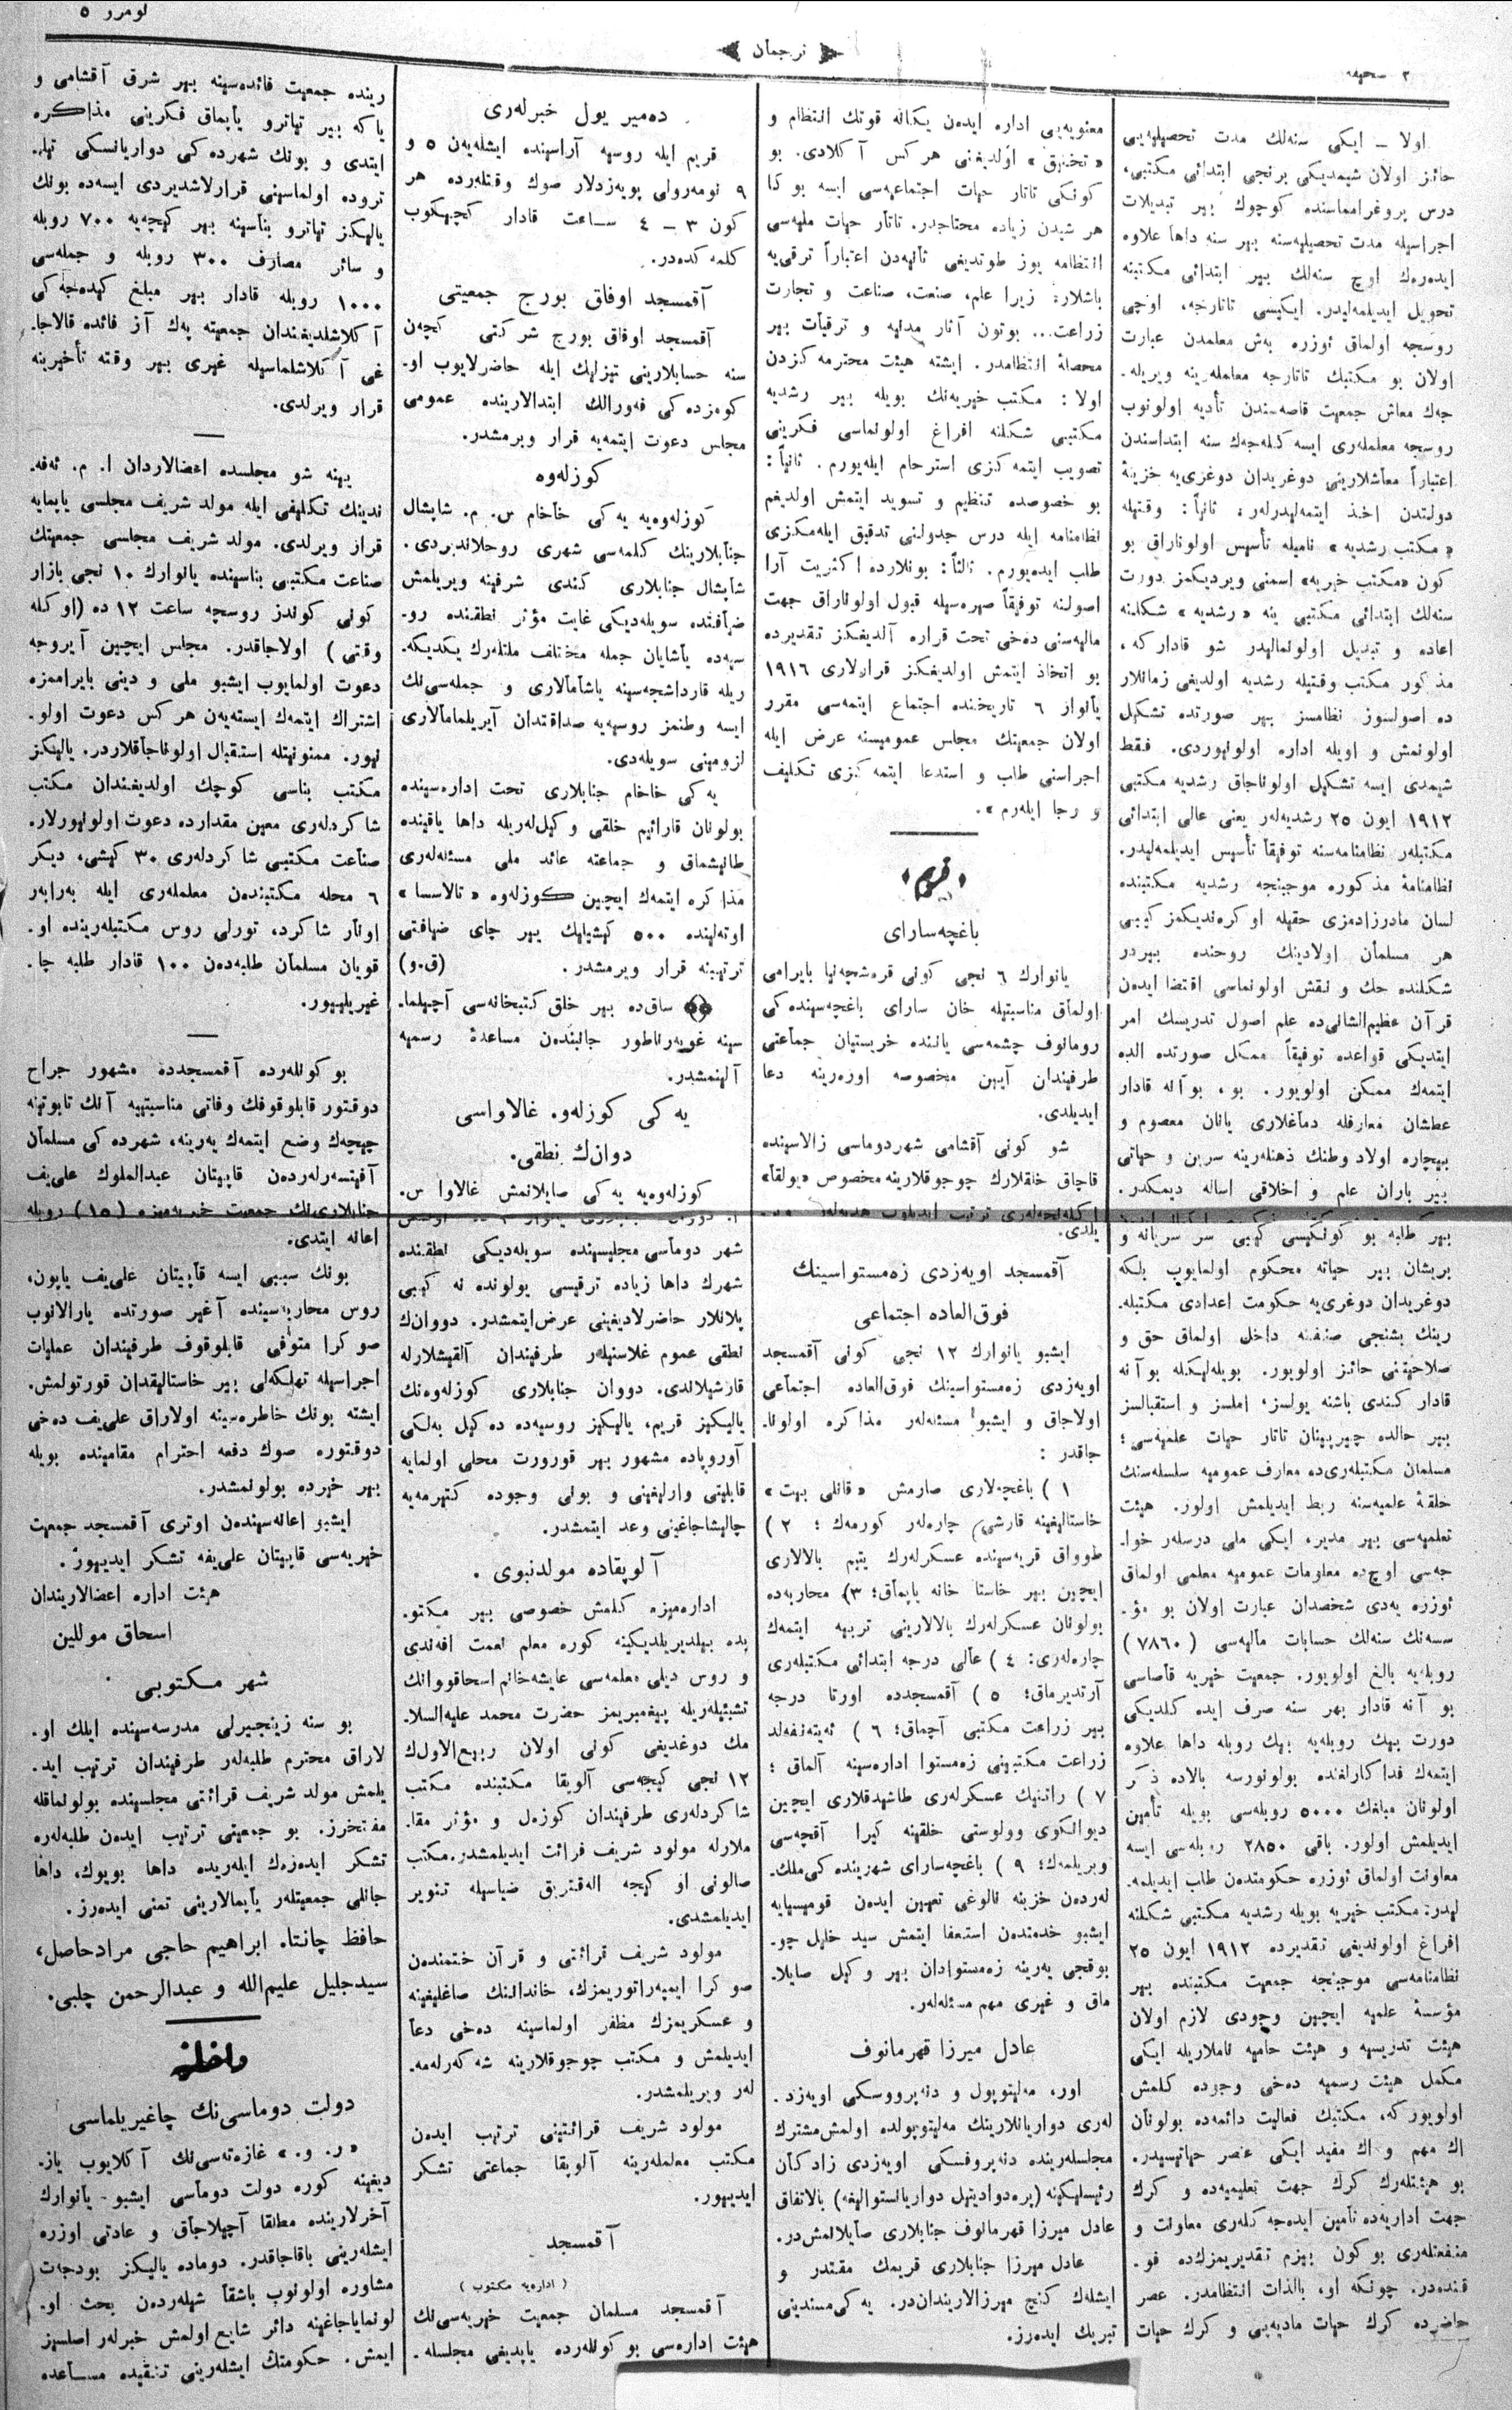 نومرو ٥
ترجمان
٢ صحیفه
اولا ــ ایکی سنه‌لك مدت تحصیلیه‌یی
حائز اولان شیمدیکی برنجی ابتدائی مکتبی،
درس پروغرامماسنده کوچوك بیر تبدیلات
اجراسیله مدت تحصیلیه‌سنه بیر سنه داها علاوه
ایده‌ره‌ك اوچ سنه‌لك بیر ابتدائی مکتبنه
تحویل ایدیلمه‌لیدر. ایکیسی تاتارجه، اوچی
روسجه اولماق ئوزره به‌ش معلمدن عبارت
اولان بو مکتبك تاتارجه معلمله‌رینه ویریله‌ـ
جه‌ك معاش جمعیت قاصه‌سندن تأدیه اولونوب
روسجه معلمله‌ری ایسه کله‌جه‌ك سنه ابتداسندن
اعتباراً معاشلارینی دوغریدان دوغری‌یه خزینۀ
دولتدن اخذ ایتمه‌لیدرلر؛ ثانیاً: وقتیله
« مکتب رشدیه » نامیله تأسیس اولوناراق بو
کون «مکتب خیریه» اسمنی ویردیکمز دورت
سنه‌لك ابتدائی مکتبی ینه « رشدیه » شکلنه
اعاده و تبدیل اولونمالیدر شو قادارکه،
مذکور مکتب وقتیله رشدیه اولدیغی زمانلار
ده اصولسوز نظامسز بیر صورتده تشکیل
اولونمش و اویله اداره اولونیوردی. فقط
شیمدی ایسه تشکیل اولوناجاق رشدیه مکتبی
١٩١٢ ایون ٢٥ رشدیه‌لر یعنی عالی ابتدائی
مکتبلر نظامنامه‌سنه توفیقاً تأسیس ایدیلمه‌لیدر.
نظامنامۀ مذکوره موجبنجه رشدیه مکتبنده
لسان مادرزادمزی حقیله اوکره‌ندیکمز کیبی
هر مسلمان اولادینك روحنده بیر در
شکلنده حك و نقش اولونماسی اقتضا ایدن
قرآن عظیم‌الشانی‌ده علم اصول تدریسك امر
ایتدیکی قواعده توفیقاً ممکل صورتده الده
ایتمه‌ك ممکن اولویور. بو، بو آنه قادار
عطشان معارفله دماغلاری یانان معصوم و
بیچاره اولاد وطنك ذهنله‌رینه سرین و حیاتی
بیر باران علم و اخلاقی اساله دیمکدر.
بیر طلبه بو کونکیسی کیبی سر سریانه و
پریشان بیر حیاته محکوم اولمایوب بلکه
دوغریدان دوغری‌یه حکومت اعدادی مکتبله‌ـ
رینك بشنجی صنفنه داخل اولماق حق و
صلاحیتنی حائز اولویور. بویله‌لیکله بو آنه
قادار کندی باشنه یولسز، املسز و استقبالسز
بیر حالده چیرپینان تاتار حیات علمیه‌سی؛
مسلمان مکتبله‌ری‌ده معارف عمومیه سلسله‌سنك
خلقۀ علمیه‌سنه ربط ایدیلمش اولور. هیئت
تعلمیه‌سی بیر مدیر، ایکی ملی درسله‌ر خواـ
جه‌سی اوچ‌ده معلومات عمومیه معلمی اولماق
ئوزره یه‌دی شخصدان عبارت اولان بو مؤـ
سسه‌نك سنه‌لك حسابات مالیه‌سی ( ٧٨٦٠ )
روبله‌یه بالغ اولویور. جمعیت خیریه قاصاسی
بو آنه قادار بهر سنه صرف ایده کلدیکی
دورت بیك روبله‌یه بیك روبله داها علاوه
ایتمه‌ك فداکارلغنده بولونورسه بالاده ذکر
اولونان مبلغك ٥٠٠٠ روبله‌سی بویله تأمین
ایدیلمش اولور. باقی ٢٨٥٠ روبله‌سی ایسه
معاونت اولماق ئوزره حکومتدن طلب ایدیلمه‌ـ
لیدر؛ مکتب خیریه بویله رشدیه مکتبی شکلنه
افراغ اولوندیغی تقدیرده ١٩١٢ ایون ٢٥
نظامنامه‌سی موجبنجه جمعیت مکتبنده بیر
مؤسسۀ علمیه ایچین وجودی لازم اولان
هیئت تدریسیه و هیئت حامیه ناملاریله ایکی
مکمل هیئت رسمیه ده‌خی وجوده کلمش
اولویورکه، مکتبك فعالیت دائمه‌ده بولونان
اك مهم و اك مفید ایکی عنصر حیاتیسیدر.
بو هیئتله‌رك كرك جهت تعلیمیه‌ده و كرك
جهت اداریه‌ده تأمین ایده‌جه‌کله‌ری معاونت و
منفعتله‌ری بو کون بیزم تقدیریمزك‌ده فوـ
قنده‌در. چونکه او، بالذات انتظامدر. عصر
حاضرده كرك حیات مادیه‌یی و كرك حیات
معنویه‌یی اداره ایدن یکانه قوتك انتظام و
« تخنیق » اولدیغنی هرکس آکلادی. بو
کونکی تاتار حیات اجتماعیه‌سی ایسه بوکا
هر شیدن زیاده محتاجدر. تاتار حیات ملیه‌سی
انتظامه یوز طوتدیغی ثانیه‌دن اعتباراً ترقی‌یه
باشلار؛ زیرا علم، صنعت، صناعت و تجارت
زراعت... بوتون آثار مدنیه و ترقیات بیر
محصلۀ انتظامدر. ایشته هیئت محترمه‌کزدن
اولا: مکتب خیریه‌نك بویله بیر رشدیه
مکتبی شکلنه افراغ اولونماسی فکرینی
تصویب ایتمه‌کزی استرحام ایله‌یورم. ثانیاً:
بو خصوصده تنظیم و تسوید ایتمش اولدیغم
نظامنامه ایله درس جدولنی تدقیق ایله‌مکزی
طلب ایده‌یورم. ثالثاً: بونلارده اکثریت آرا
اصولنه توفیقاً صیره‌سیله قبول اولوناراق جهت
مالیه‌سنی ده‌خی تحت قراره آلدیغکز تقدیرده
بو اتخاذ ایتمش اولدیغکز قرارلاری ١٩١٦
یانوار ٦ تاریخنده اجتماع ایتمه‌سی مقرر
اولان جمعیتك مجلس عمومیسنه عرض ایله
اجراسنی طلب و استدعا ایتمه‌کزی تکلیف
و رجا ایله‌رم ».
باغچه‌سارای
یانوارك ٦ نجی کونی قره‌شچه‌نیا بایرامی
اولماق مناسبتیله خان سارای باغچه‌سینده‌کی
رومانوف چشمه‌سی یاننده خریستیان جماعتی
طرفیندان آیین مخصوصه اوزه‌رینه دعا
ایدیلدی.
شو کونی آقشامی شهردوماسی زالاسینده
قاچاق خلقلارك چوجوقلارینه مخصوص «یولقا»
یلدی.
آقمسجد اویه‌زدی زه‌مستواسینك
فوق‌العاده اجتماعی
ایشبو یانوارك ١٢ نجی کونی آقمسجد
اویه‌زدی زه‌مستواسینك فوق‌العاده اجتماعی
اولاجاق و ایشبو مسئله‌لر مذاکره اولوناـ
جاقدر:
١ ) باغچه‌لاری صارمش « قانلی بیت »
خاستالیغینه قارشی چاره‌لر کورمه‌ك؛ ٢ )
طوواق قریه‌سینده عسکرله‌رك یتیم بالالاری
ایچین بیر خاستا خانه یاپماق؛ ٣) محاربه‌ده
بولونان عسکرله‌رك بالالارینی تربیه ایتمه‌ك
چاره‌له‌ری؛ ٤ ) عالی درجه ابتدائی مکتبله‌ری
آرتدیرماق؛ ٥ ) آقمسجدده اورتا درجه
بیر زراعت مکتبی آچماق؛ ٦ )
زراعت مکتبینی زه‌مستوا اداره‌سینه آلماق؛
٧ ) راتنیك عسکرله‌ری طاشیدقلاری ایچین
دیوانکوی وولوستی خلقینه کیرا آقچه‌سی
ویریلمه‌ك؛ ٩ ) باغچه‌سارای شهرینده‌کی ملكـ
له‌ردن خزینه نالوغی تعیین ایدن قومیسیایه
ایشبو خدمتدن استعفا ایتمش سید خلیل چوـ
بوقجی یه‌رینه زه‌مستوادان بیر وکیل صایلاـ
ماق و غیری مهم مسئله‌لر.
عادل میرزا قهرمانوف
اور، مه‌لیتوپول و دنه‌پرووسکی اویه‌زدـ
له‌ری دواریانلارینك مه‌لیتوپولده اولمش مشترك
مجلسله‌رینده دنه‌پروفسکی اویه‌زدی زادکان
رئیسلیکینه (پره‌دوادیتیل دواریانستوالیغه) بالاتفاق
عادل میرزا قهرمانوف جنابلاری صایلانمش‌در.
عادل میرزا جنابلاری قریمك مقتدر و
ایشله‌ك کنج میرزالاریندان‌در. یه‌کی مسندینی
تبریك ایده‌رز.
ده‌میر یول خبرله‌ری
قریم ایله روسیه آراسینده ایشله‌یه‌ن ٥ و
٩ نومه‌رولی پویه‌زدلار صوك وقتله‌رده هر
کون ٣ ــ ٤ ساعت قادار کیچیکوب
کلمه‌کده‌در.
آقمسجد اوفاق بورج جمعیتی
آقمسجد اوفاق بورج شرکتی کیچه‌ن
سنه حسابلارینی تیزلیك ایله حاضرلایوب اوـ
کومزده‌کی فه‌ورالك ابتدالارینده عمومی
مجلس دعوت ایتمه‌یه قرار ویرمشدر.
کوزله‌وه
کوزله‌وه‌یه یه‌کی خاخام س. م. شاپشال
جنابلارینك کلمه‌سی شهری روحلاندیردی.
شاپشال جنابلاری کندی شرفینه ویریلمش
ضیافتده سویله‌دیکی غایت مؤثر نطقنده روـ
سیه‌ده یاشایان جمله مختلف ملتله‌رك یکدیکه‌ـ
ریله قارداشجه‌سینه یاشامالاری و جمله‌سی‌نك
ایسه وطنمز روسیه‌یه صداقتدان آیریلمامالاری
لزومینی سویله‌دی.
یه‌کی خاخام جنابلاری تحت اداره‌سینده
بولونان قارائیم خلقی وکیل‌له‌ریله داها یاقینده
طانیشماق و جماعته عائد ملی مسئله‌له‌ری
مذاکره ایتمه‌ك ایچین کوزله‌وه « تالاسسا »
اوته‌لینده ٥٠٠ کیشیلیك بیر چای ضیافتی
ترتیبنه قرار ویرمشدر. (ق.و)
ساق‌ده بیر خلق کتبخانه‌سی آچیلماـ
سینه غوبه‌رناطور جانبندن مساعدۀ رسمیه
آلینمشدر.
یه‌کی کوزله‌وه غالاواسی
دوان‌ك نطقی.
کوزله‌وه‌یه یه‌کی صایلانمش غالاوا س.
شهر دوماسی مجلیسینده سویله‌دیکی نطقنده
شهرك داها زیاده ترقیسی یولونده نه کیبی
پلانلار حاضرلادیغینی عرض ایتمشدر. دووان‌ك
نطقی عموم غلاسنیلر طرفیندان آلقیشلارله
قارشیلاندی. دووان جنابلاری کوزله‌وه‌نك
یالیکیز قریم، یالیکیز روسیه‌ده ده‌کیل به‌لکی
آوروپاده مشهور بیر قورورت محلی اولمایه
قابلیتی وارلیغینی و بونی وجوده کتیرمه‌یه
چالیشاجاغینی وعد ایتمشدر.
آلوپقاده مولدنبوی.
اداره‌میزه کلمش خصوصی بیر مکتوـ
بده بیلدیریلدیکینه کوره معلم نعمت افه‌ندی
و روس دیلی معلمه‌سی عایشه خانم اسحاقووانك
تشبثیله‌ریله پیغمبریمز حضرت محمد علیه‌السلاـ
مك دوغدیغی کونی اولان ربیع‌الاول‌ك
١٢ نجی کیچه‌سی آلوپقا مکتبنده مکتب
شاکردله‌ری طرفیندان کوزه‌ل و مؤثر مقاـ
ملارله مولود شریف قرائت ایدیلمشدر. مکتب
صالونی او کیجه اله‌قتریق ضیاسیله تنویر
ایدیلمشدی.
مولود شریف قرائتی و قرآن ختمندن
صوکرا ایمپه‌راتوریمزك، خاندانینك صاغلیغینه
و عسکریمزك مظفر اولماسینه ده‌خی دعا
ایدیلمش و مکتب چوجوقلارینه شه‌که‌رله‌مه‌ـ
لر ویریلمشدر.
مولود شریف قرائتینی ترتیب ایدن
مکتب معلمله‌رینه آلوپقا جماعتی تشکر
ایدییور.
آقمسجد
( اداره‌یه مکتوب )
آقمسجد مسلمان جمعیت خیریه‌سی‌نك
هیئت اداره‌سی بو کونله‌رده یاپدیغی مجلسله‌ـ
رینده جمعیت فائده‌سینه بیر شرق آقشامی و
یاکه بیر تیاترو یاپماق فکرینی مذاکره
ایتدی و بونك شهرده‌کی دواریانسکی تیاـ
ترود‌ه اولماسینی قرارلاشدیردی ایسه‌ده بونك
یالیکز تیاترو بناسینه بیر کیچه‌یه ٧٠٠ روبله
و سائر مصارف ٣٠٠ روبله و جمله‌سی
١٠٠٠ روبله قادار بیر مبلغ کیده‌جه‌کی
آکلاشلدیغندان جمعیته په‌ك آز فائده قالاجاـ
غی آکلاشلماسیله غیری بیر وقته تأخیرینه
قرار ویرلدی.
یینه شو مجلسده اعضالاردان ا. م. ئه‌فه‌ـ
ندینك تکلیفی ایله مولد شریف مجلسی یاپمایه
قرار ویرلدی. مولد شریف مجلسی جمعیتك
صناعت مکتبی بناسینده یانوارك ١٠ نجی بازار
کونی کوندز روسچه ساعت ١٢ ده (اوکله
وقتی ) اولاجاقدر. مجلس ایچین آیروجه
دعوت اولمایوب ایشبو ملی و دینی بایراممزه
اشتراك ایتمه‌ك ایسته‌یه‌ن هرکس دعوت اولوـ
نیور. ممنونیتله استقبال اولوناجاقلاردر. یالیکز
مکتب بناسی کوچك اولدیغندان مکتب
شاکردله‌ری معین مقدارده دعوت اولونیورلار.
صناعت مکتبی شاکردله‌ری ٣٠ کیشی، دیکر
٦ محله مکتبندن معلمله‌ری ایله به‌رابه‌ر
اونار شاکرد، تورلی روس مکتبله‌رینده اوـ
قویان مسلمان طلبه‌دن ١٠٠ قادار طلبه چاـ
غیریلییور.
بو کونله‌رده آقمسجدده مشهور جراح
دوقتور قابلوقوفك وفاتی مناسبتییه آنك تابوتینه
چیچه‌ك وضع ایتمه‌ك یه‌رینه، شهرده‌کی مسلمان
آفیتسه‌رله‌ردن قاپیتان عبدالملوك علی‌یف
جنابلاری‌نك جمعیت خیریه‌میزه (١٥) روبله
اعانه ایتدی.
بونك سببی ایسه قاپیتان علی‌یف یاپون،
روس محاربه‌سینده آغیر صورتده یارالانوب
صوکرا متوفی قابلوقوف طرفیندان عملیات
اجراسیله تهلکه‌لی بیر خاستالیقدان قورتولمش.
ایشته بونك خاطره‌سینه اولاراق علی‌یف ده‌خی
دوقتوره صوك دفعه احترام مقامینده بویله
بیر خیرده بولونمشدر.
ایشبو اعانه‌سیندن اوتری آقمسجد جمعیت
خیریه‌سی قاپیتان علی‌یفه تشکر ایدییور.
هیئت اداره اعضالاریندان
اسحاق موللین
شهر مکتوبی
بو سنه زینجیرلی مدرسه‌سینده ایلك اوـ
لاراق محترم طلبه‌لر طرفیندان ترتیب ایدـ
یلمش مولد شریف قرائتی مجلسینده بولونماقله
مفتخرز. بو جمعیتی ترتیب ایدن طلبه‌له‌ره
تشکر ایده‌ره‌ك ایله‌ریده داها بویوك، داها
جانلی جمعیتلر یاپمالارینی تمنی ایده‌رز.
حافظ چانتا. ابراهیم حاجی مرادحاصل،
سیدجلیل علیم‌الله و عبدالرحمن چلبی.
داخلیه
دولت دوماسی‌نك چاغیریلماسی
« ر. و. » غازه‌ته‌سی‌نك آکلایوب یازـ
دیغینه کوره دولت دوماسی ایشبو یانوارك
آخرلارینده مطلقا آچیلاجاق و عادتی اوزره
ایشله‌رینی باقاجاقدر. دوماده یالیکز بودجه‌ت
مشاوره اولونوب باشقا شیله‌ردن بحث اوـ
لونمایاجاغینه دائر شایع اولمش خبرلر اصلسیز
ایمش. حکومتك ایشله‌رینی تنقیده مساعده